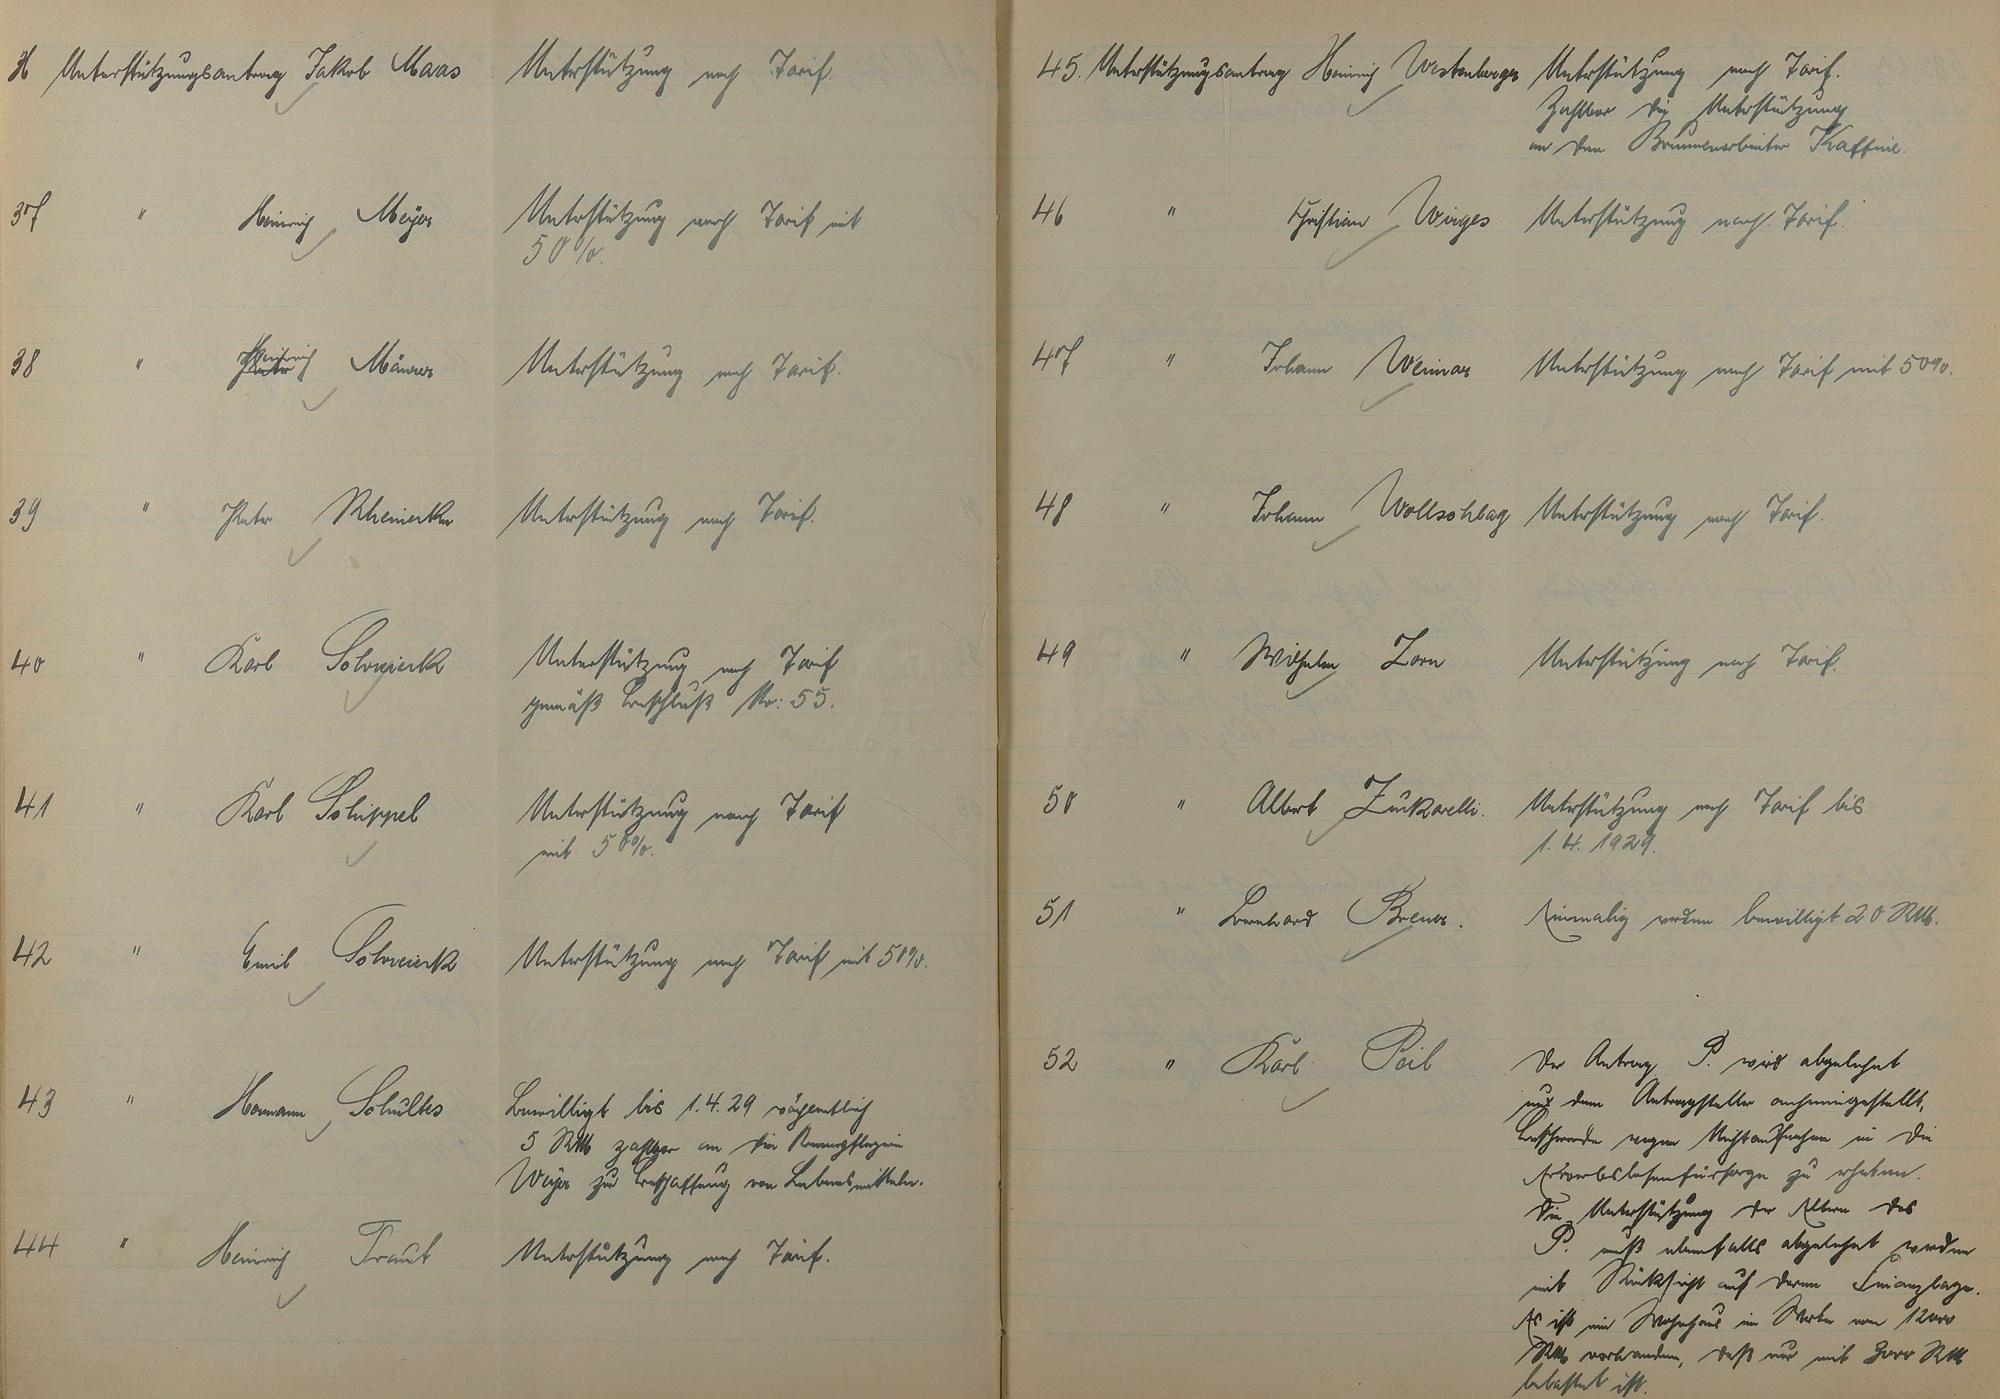 36 Unterstützungsantrag Jakob Maas Unterstützung nach Tarif.
37 " Heinrich Meyer Unterstützung nach Tarif mit
50%.
38 " Heinrich Mäurer Unterstützung nach Tarif.
39 " Peter Unterstützung nach Tarif.
40 " Karl Unterstützung nach Tarif
gemäß Beschluß Nr: 55.
41 " Karl Schippel Unterstützung nach Tarif
mit 50%.
42 " Emil Unterstützung nach Tarif mit 50%.
43 " Hermann Schultes Bewilligt bis 1.4.29 wöchentlich
5 RM zahlbar an die Armenpflegerin
Weyer zur Beschaffung von Lebensmitteln.
44 " Heinrich Traut Unterstützung nach Tarif.
45. Unterstützungsantrag Heinrich Westenberger Unterstützung nach Tarif.
Zahlbar die Unterstützung
an den Brunnenarbeiter
46 " Christian Wirges Unterstützung nach Tarif.
47 " Johann Weimar Unterstützung nach Tarif mit 50%.
48 " Johann Wollschlag Unterstützung nach Tarif.
49 " Wilhelm Zorn Unterstützung nach Tarif.
50 " Albert Zuckarelli. Unterstützung nach Tarif bis
1.4.1929.
51 " Bernhard Einmalig werden bewilligt 20 RM.
52 " Karl Peil Der Antrag P. wird abgelehnt
und dem Antragsteller anheimgestellt,
Beschwerde wegen Nichtaufnahme in die
Erwerbslosenfürsorge zu erheben.
Die Unterstützung der Eltern des
P. muß ebenfalls abgelehnt werden
mit Rücksicht auf deren Finanzlage.
Es ist ein Wohnhaus im Werte von 12000
RM vorhanden, daß nur mit RM
belastet ist.